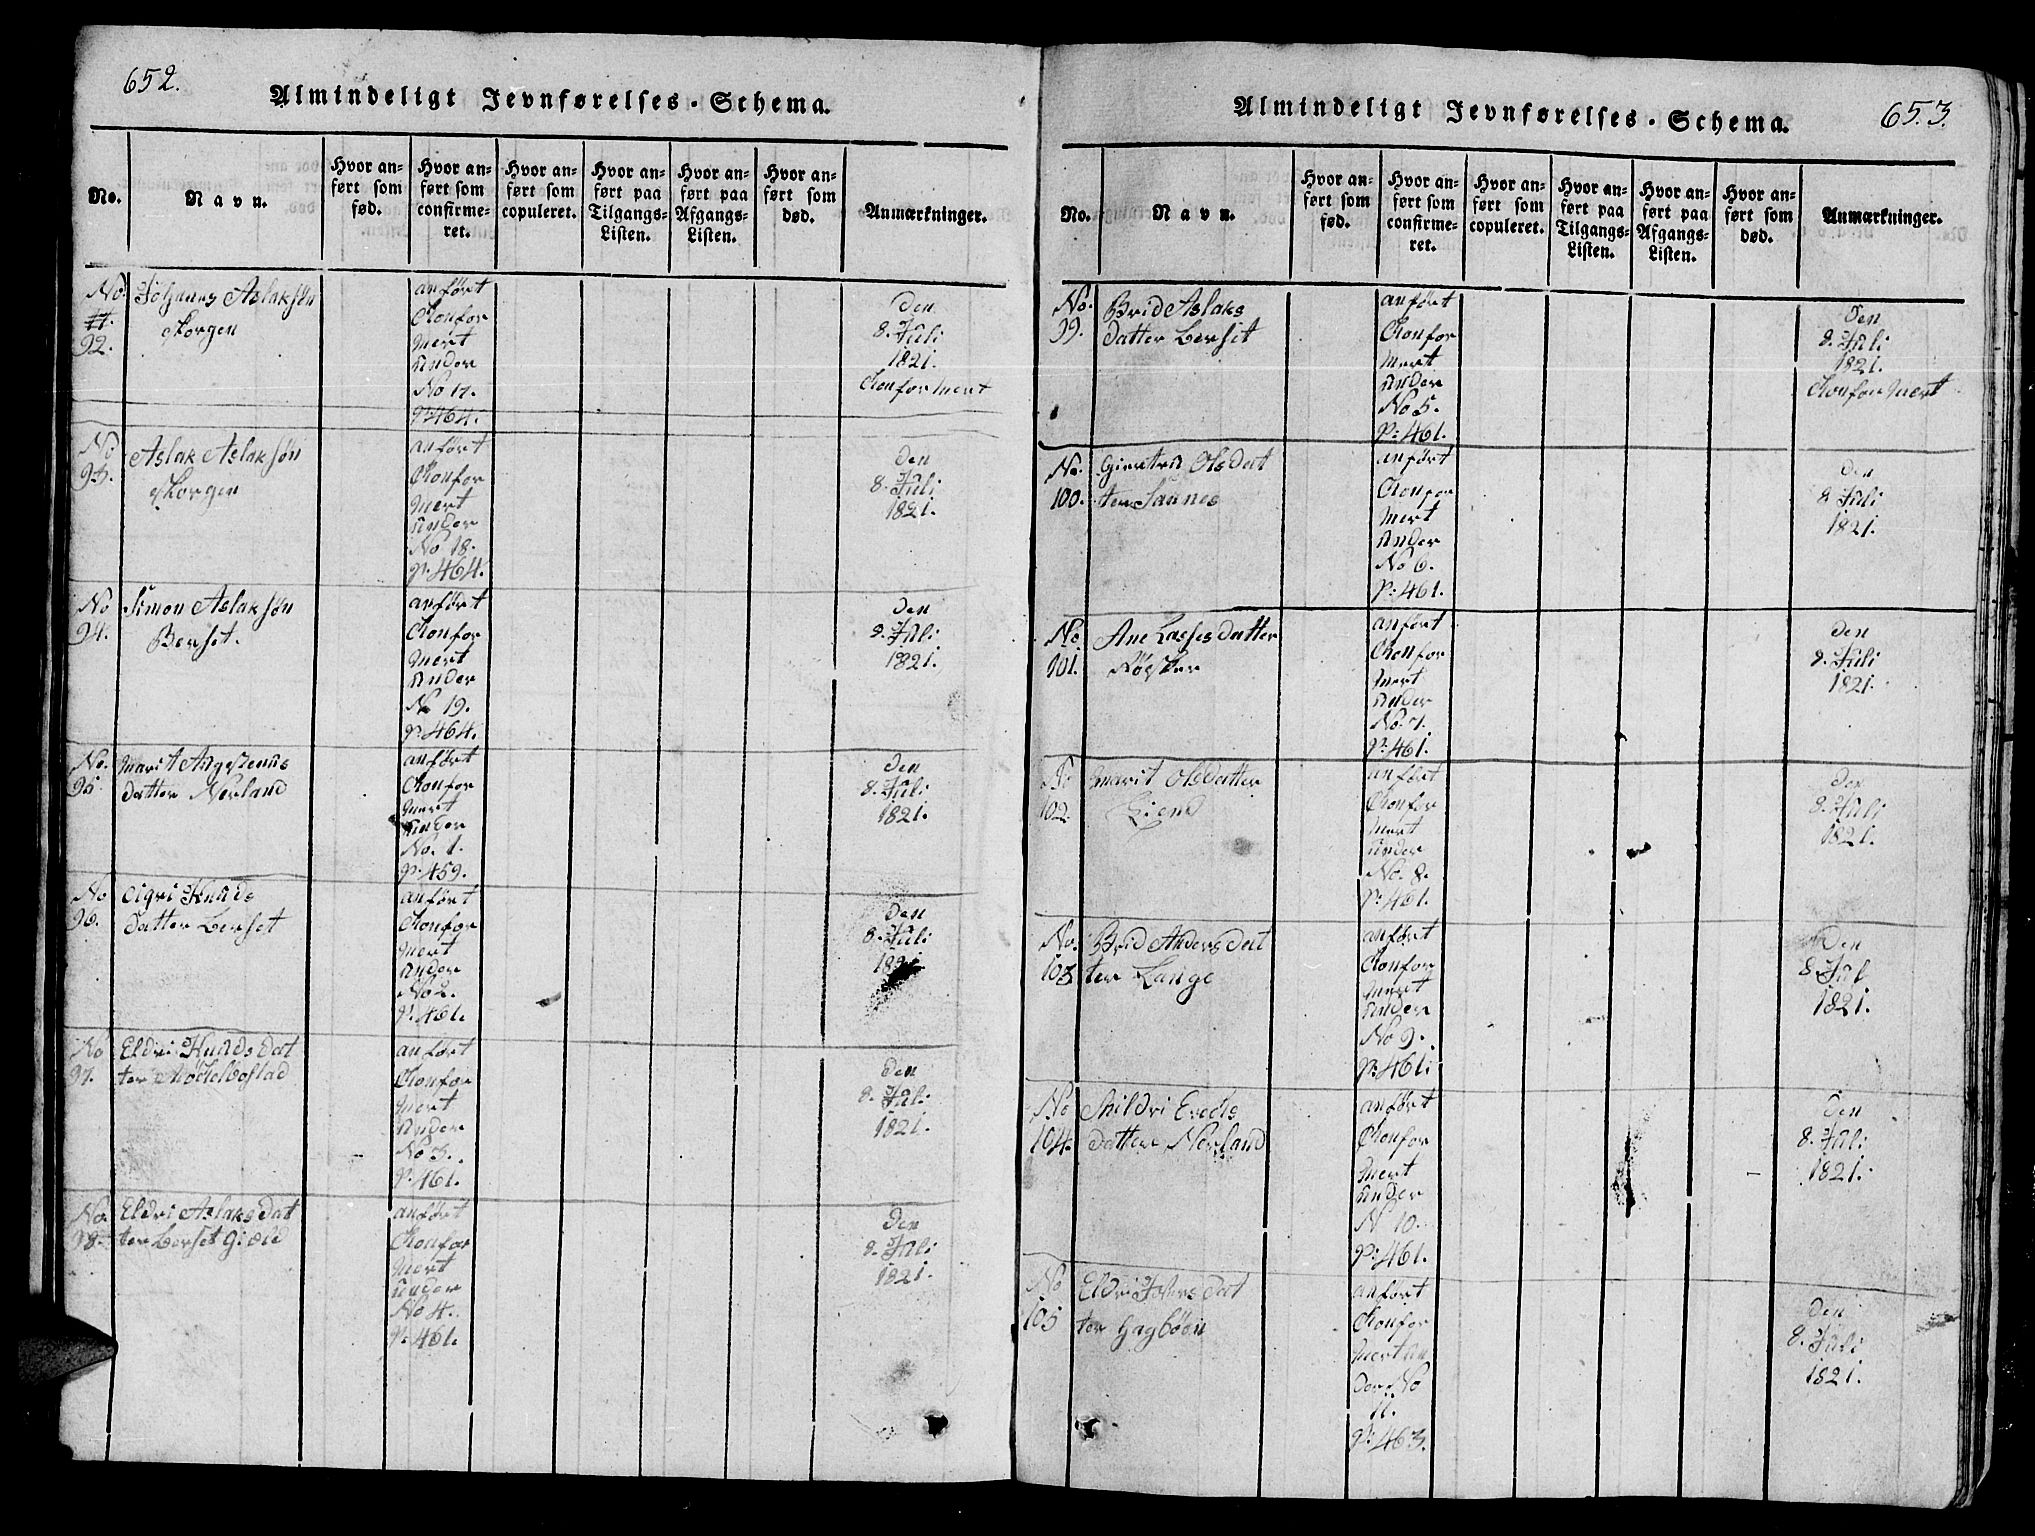 652.
Almindeligt Jevnførelses-Schema.
No.
Navn.
Hvor an-
ført som
fød.
Hvor an-
ført som
confirme-
ret.
Hvor an-
ført som
copuleret.
Hvor an-
ført paa
Tilgangs-
Listen.
Hvor an-
ført paa
Afgangs-
Listen.
Hvor an-
ført som
død.
Anmærkninger.
No.
92.
Johanes Aslaksøn
Skorgen
anført
Konfor
mert
under
No 17.
p:464.
Den
8. Juli
1821.
Konformert
No
93.
Aslak Aslaksøn
Skorgen
anført
Konfor
mert
under
No 18.
p:464.
Den
8. Juli
1821.
No
94.
Simon Aslaksøn
Berset.
anført
Konfor
mert
under
No 19.
p:464.
Den
8. Juli
1821.
No.
95.
Marit
datter Nerland
anført
Konfor
mert
under
No. 1.
p:459.
Den
8. Juli
1821.
No
96.
Sigri Knuds
datter Berset
anført
Konfor
mert
under
No 2.
p:461.
Den
8. Juli
1821
No
97.
Eldri Knuds dat
ter
anført
Konfor
mert
under
No 3.
p:461.
Den
8. Juli
1821.
No.
98.
Eldri Aslaks dat
ter Berset
anført
Konfor
mert
under
No 4.
p:461.
Den
8. Juli
1821.
653.
Almindeligt Jevnførelses-Schema.
No.
Navn.
Hvor an-
ført som
fød.
Hvor an-
ført som
confirme-
ret.
Hvor an-
ført som
copuleret.
Hvor an-
ført paa
Tilgangs-
Listen.
Hvor an-
ført paa
Afgangs-
Listen.
Hvor an-
ført som
død.
Anmærkninger.
No.
99.
Brid Aslaks
datter Berset
anført
Konfor
mert
under
No 5.
p:461.
Den
8. Juli
1821.
Konformert
No.
100.
Giertru Olsdat
ter
anført
Konfor
mert
under
No 6.
p:461.
Den
8 Juli
1821.
No
101.
Ane Lasses datter
anført
Konfor
mert
under
No. 7.
p:461.
Den
8. Juli
1821.
No
102.
Marit Olsdatter
Lien
anført
Konfor
mert
under
No. 8.
p:461.
Den
8. Juli
1821.
No.
103
Brid Anders dat
ter Lange
anført
Konfor
mert
under
No 9.
p:461.
Den
8 Jul
1821.
No
104.
datter Nerland
anført
Konfor
mert
under
N 10.
p:461.
Den
8. Juli
1821.
No
105
Eldri Ivers dat
ter Hagbøen
anført
Konfor
mert un
der No
11.
p:463.
Den
8. Juli
1821.